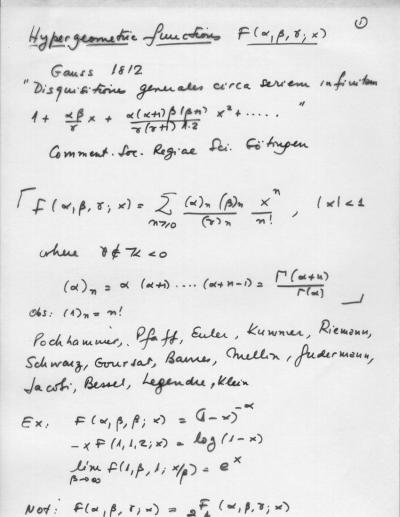 ①
Hypergeometric functions F(α, β, γ; x)
Gauss 1812
"Disquisitiones generales circa seriem infinitam
1 + αβ/γ x + α(α+1)β(β+1)/γ(γ+1)1·2 x² + ..... "
Comment. Soc. Regiae Sci. Göttingen
F(α, β, γ; x) = Σ_{n≥0} (α)ₙ(β)ₙ/(γ)ₙ xⁿ/n! , |x| < 1
where γ ∉ ℤ<0
(α)ₙ = α(α+1)....(α+n-1) = Γ(α+n)/Γ(α)
Obs: (1)ₙ = n!
Pochhammer, Pfaff, Euler, Kummer, Riemann,
Schwarz, Goursat, Barnes, Mellin, Gudermann,
Jacobi, Bessel, Legendre, Klein
Ex: F(α, β, β; x) = (1-x)^{-α}
-x F(1, 1, 2; x) = log(1-x)
lim_{β→∞} F(1, β, 1; x/β) = eˣ
Not: F(α, β, γ; x) = ₂F₁(α, β, γ; x)